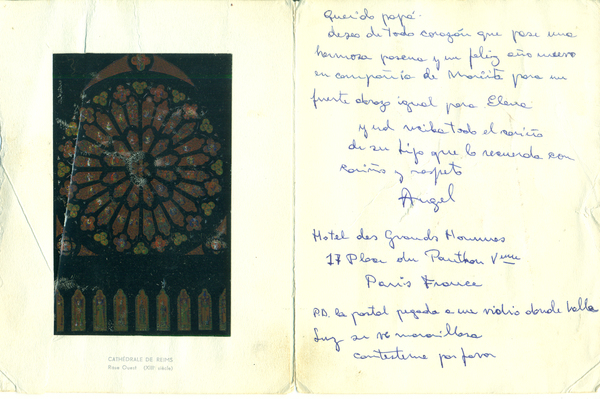 CATHÉDRALE DE REIMS
Rose Ouest (XIIIe siècle)
Querido papá.
deseo de todo corazón que pase una
hermosa pascua y un feliz año nuevo
en compañía de para un
fuerte abrazo igual para Elena
y ud reciba todo el cariño
de su hijo que lo recuerda con
cariño y respeto
Angel
Hotel des Grands Hommes
17 Place du Panthéon Veme
Paris France
P.D. la postal pegada a un vidrio donde halla
luz se ve maravillosa
contesteme por favor